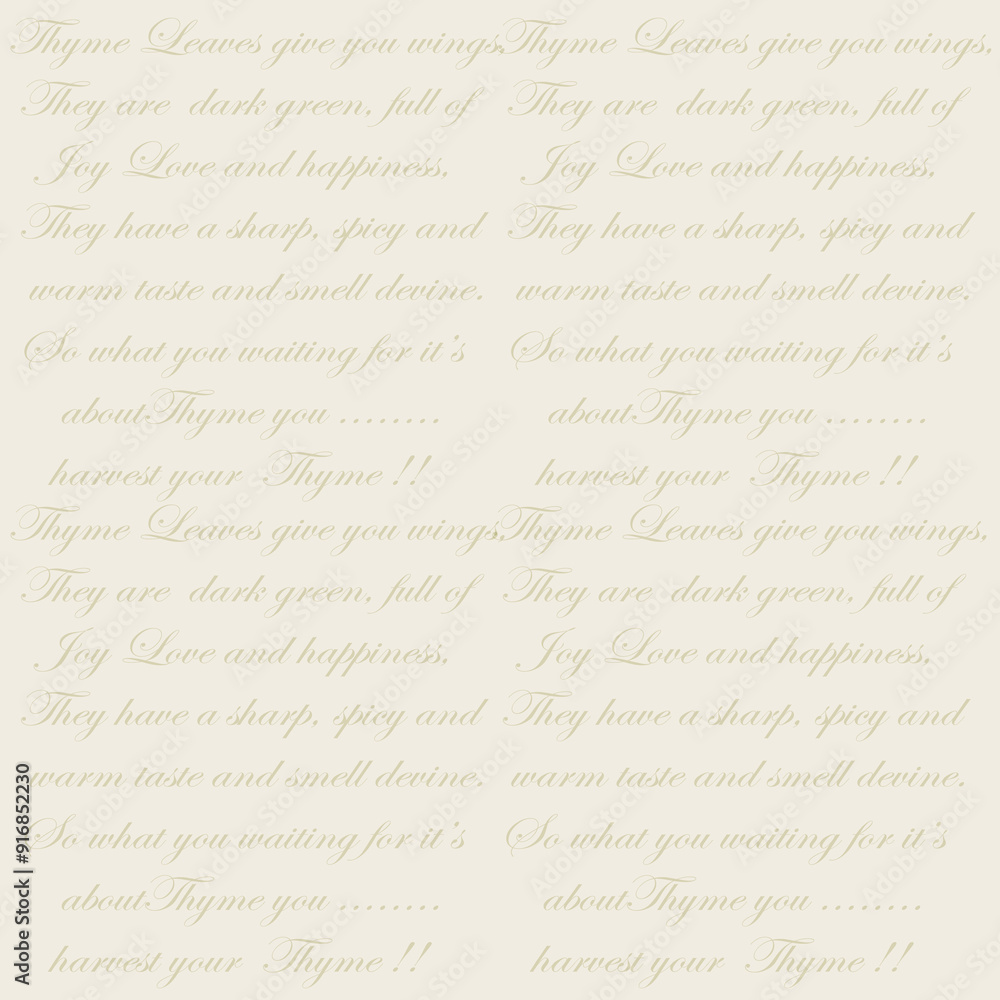 Thyme Leaves give you wings.
They are dark green, full of
Joy Love and happiness,
They have a sharp, spicy and
warm taste and smell devine.
So what you waiting for it's
aboutThyme you ........
harvest your Thyme !!
Thyme Leaves give you wings.
They are dark green, full of
Joy Love and happiness,
They have a sharp, spicy and
warm taste and smell devine.
So what you waiting for it's
aboutThyme you ........
harvest your Thyme !!
Thyme Leaves give you wings.
They are dark green, full of
Joy Love and happiness,
They have a sharp, spicy and
warm taste and smell devine.
So what you waiting for it's
aboutThyme you ........
harvest your Thyme !!
Thyme Leaves give you wings.
They are dark green, full of
Joy Love and happiness,
They have a sharp, spicy and
warm taste and smell devine.
So what you waiting for it's
aboutThyme you ........
harvest your Thyme !!
Adobe Stock | #916852230